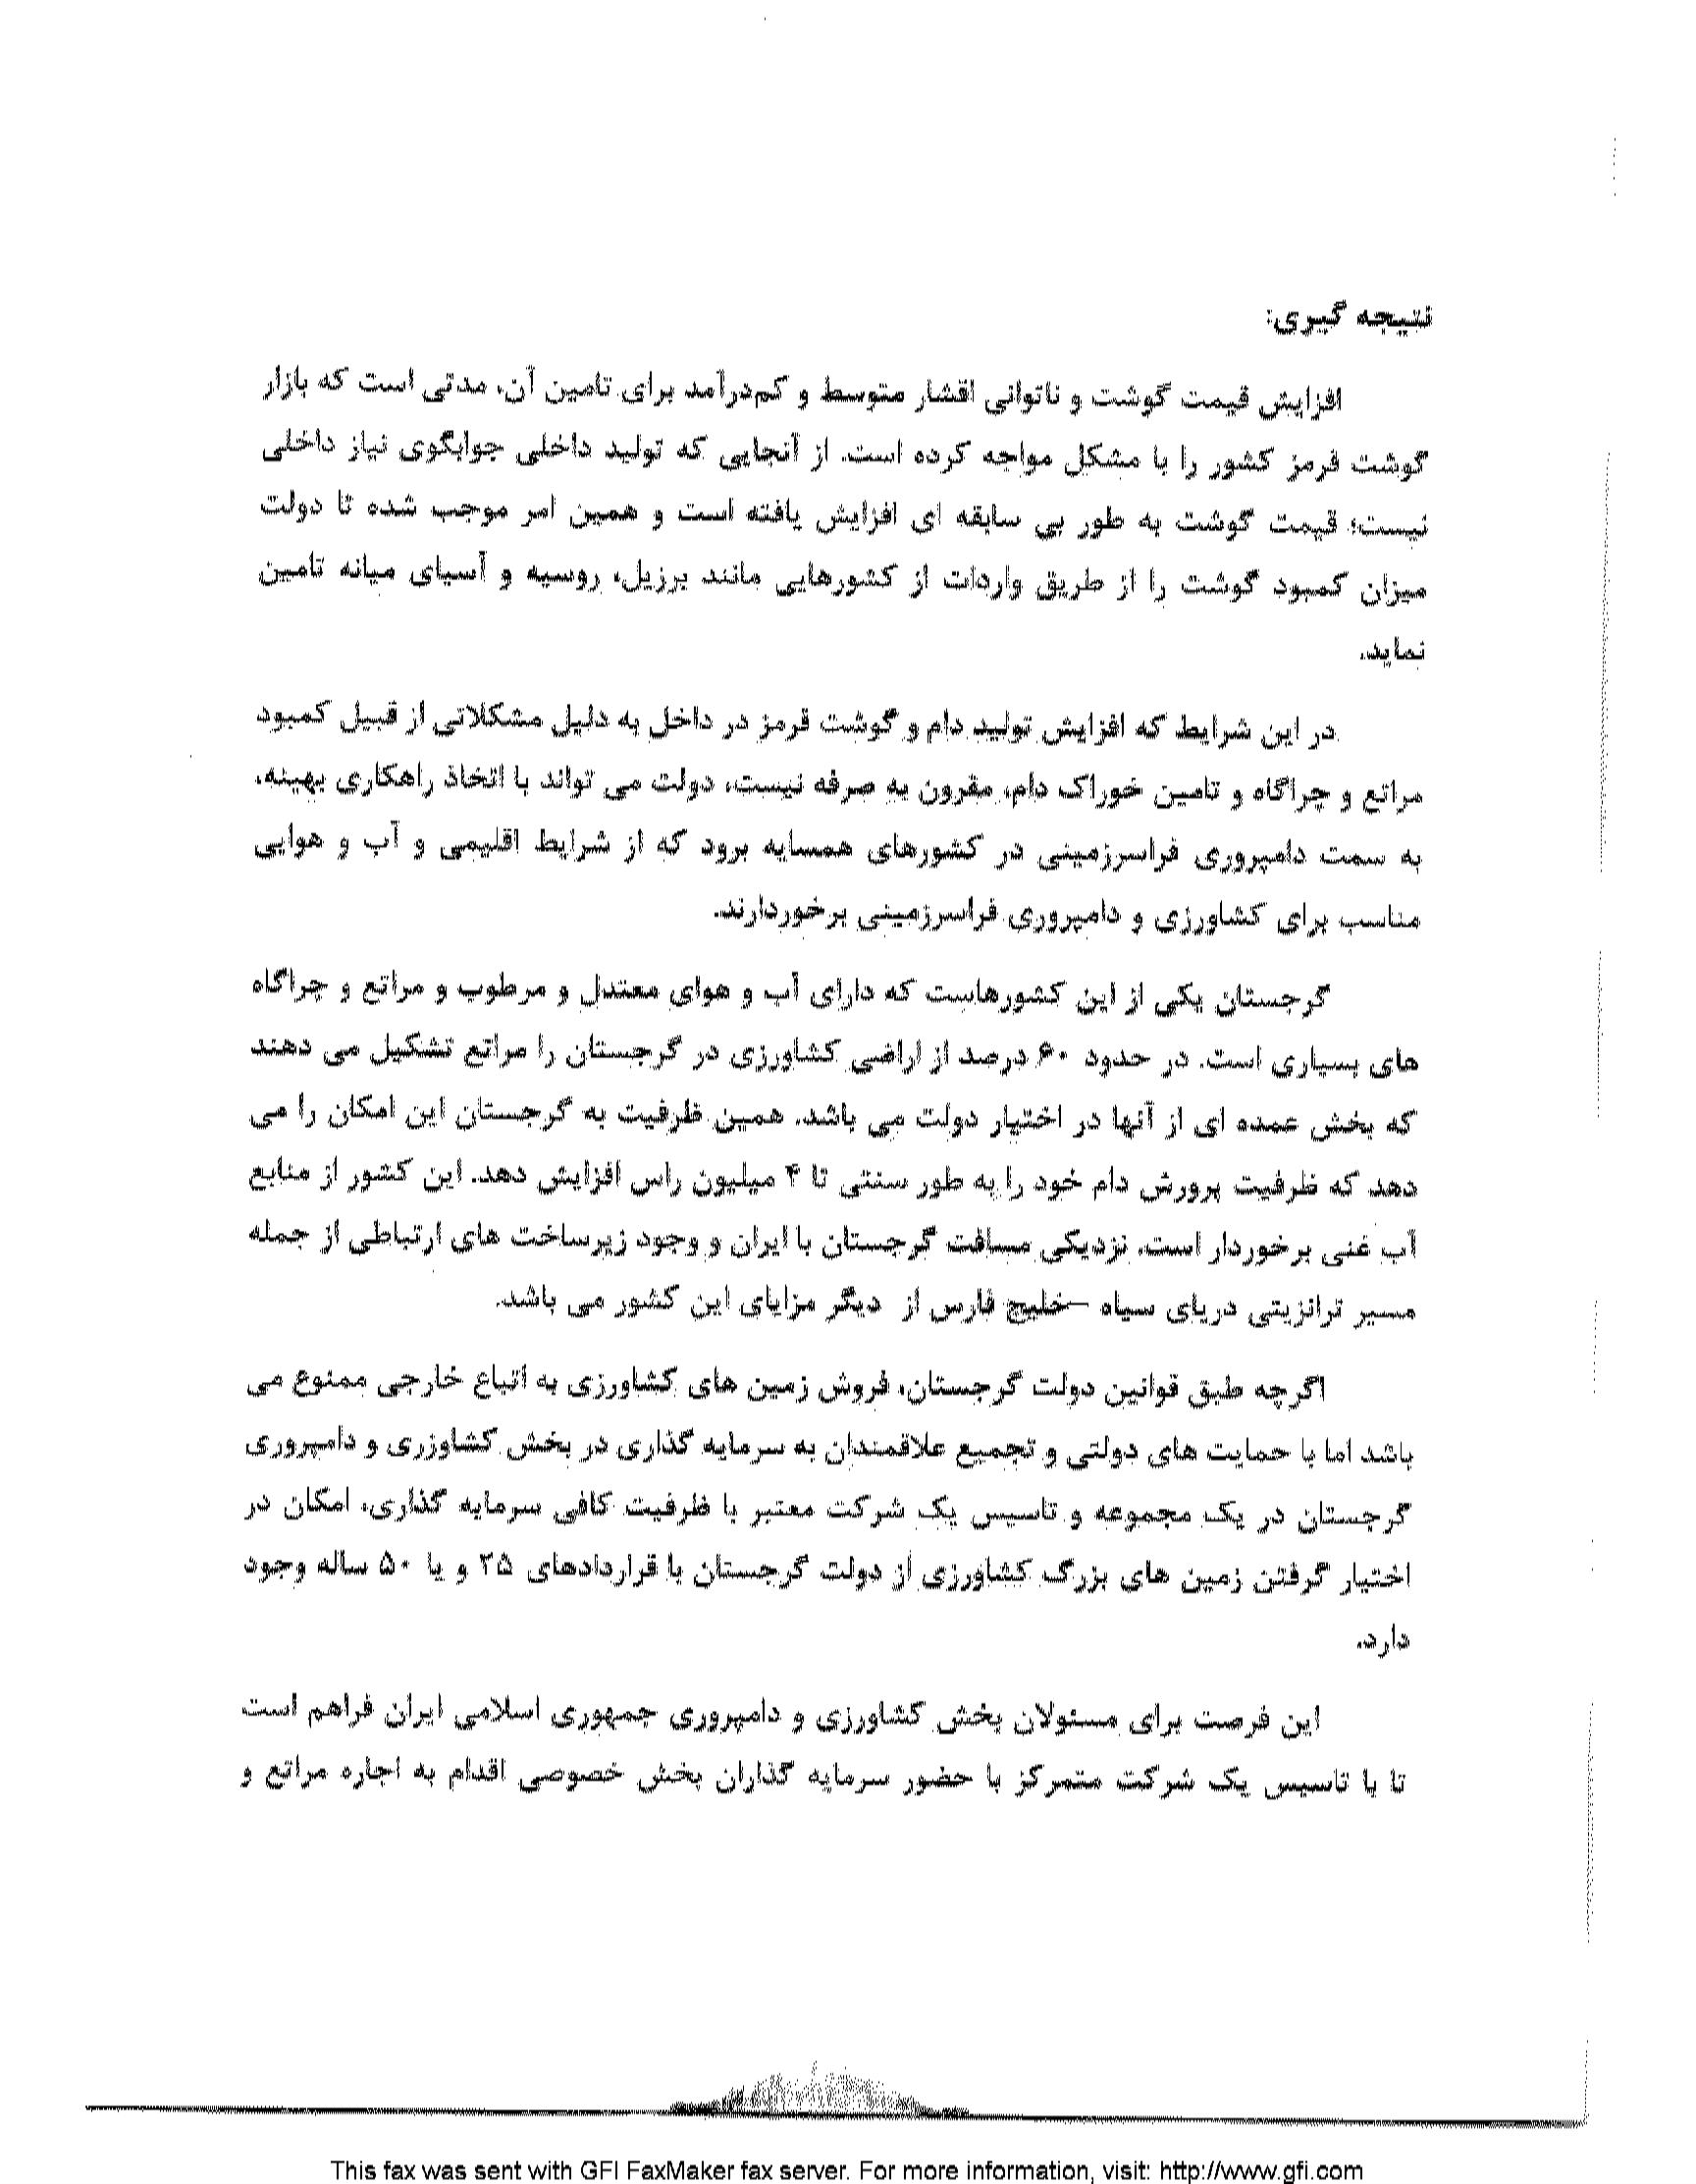 نتیجه گیری:
افزایش قیمت گوشت و ناتوانی اقشار متوسط و کم‌درآمد برای تامین آن، مدتی است که بازار
گوشت قرمز کشور را با مشکل مواجه کرده است. از آنجایی که تولید داخلی جوابگوی نیاز داخلی
نیست؛ قیمت گوشت به طور بی سابقه ای افزایش یافته است و همین امر موجب شده تا دولت
میزان کمبود گوشت را از طریق واردات از کشورهایی مانند برزیل، روسیه و آسیای میانه تامین
نماید.
در این شرایط که افزایش تولید دام و گوشت قرمز در داخل به دلیل مشکلاتی از قبیل کمبود
مراتع و چراگاه و تامین خوراک دام، مقرون به صرفه نیست، دولت می تواند با اتخاذ راهکاری بهینه،
به سمت دامپروری فراسرزمینی در کشورهای همسایه برود که از شرایط اقلیمی و آب و هوایی
مناسب برای کشاورزی و دامپروری فراسرزمینی برخوردارند.
گرجستان یکی از این کشورهاست که دارای آب و هوای معتدل و مرطوب و مراتع و چراگاه
های بسیاری است. در حدود ۶۰ درصد از اراضی کشاورزی در گرجستان را مراتع تشکیل می دهند
که بخش عمده ای از آنها در اختیار دولت می باشد. همین ظرفیت به گرجستان این امکان را می
دهد که ظرفیت پرورش دام خود را به طور سنتی تا ۴ میلیون راس افزایش دهد. این کشور از منابع
آب غنی برخوردار است. نزدیکی مسافت گرجستان با ایران و وجود زیرساخت های ارتباطی از جمله
مسیر ترانزیتی دریای سیاه –خلیج فارس از دیگر مزایای این کشور می باشد.
اگرچه طبق قوانین دولت گرجستان، فروش زمین های کشاورزی به اتباع خارجی ممنوع می
باشد اما با حمایت های دولتی و تجمیع علاقمندان به سرمایه گذاری در بخش کشاوزری و دامپروری
گرجستان در یک مجموعه و تاسیس یک شرکت معتبر با ظرفیت کافی سرمایه گذاری، امکان در
اختیار گرفتن زمین های بزرگ کشاورزی از دولت گرجستان با قراردادهای ۲۵ و یا ۵۰ ساله وجود
دارد.
این فرصت برای مسئولان بخش کشاورزی و دامپروری جمهوری اسلامی ایران فراهم است
تا با تاسیس یک شرکت متمرکز با حضور سرمایه گذاران بخش خصوصی اقدام به اجاره مراتع و
This fax was sent with GFI FaxMaker fax server. For more information, visit: http://www.gfi.com